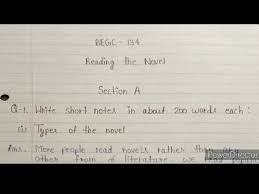 BEGC - 134
Reading the Novel
Section A
Q-1. Write short notes in about 200 words each:
(i) Types of the novel
Ans. More people read novels rather than any
other from of literature. we
PowerDirector